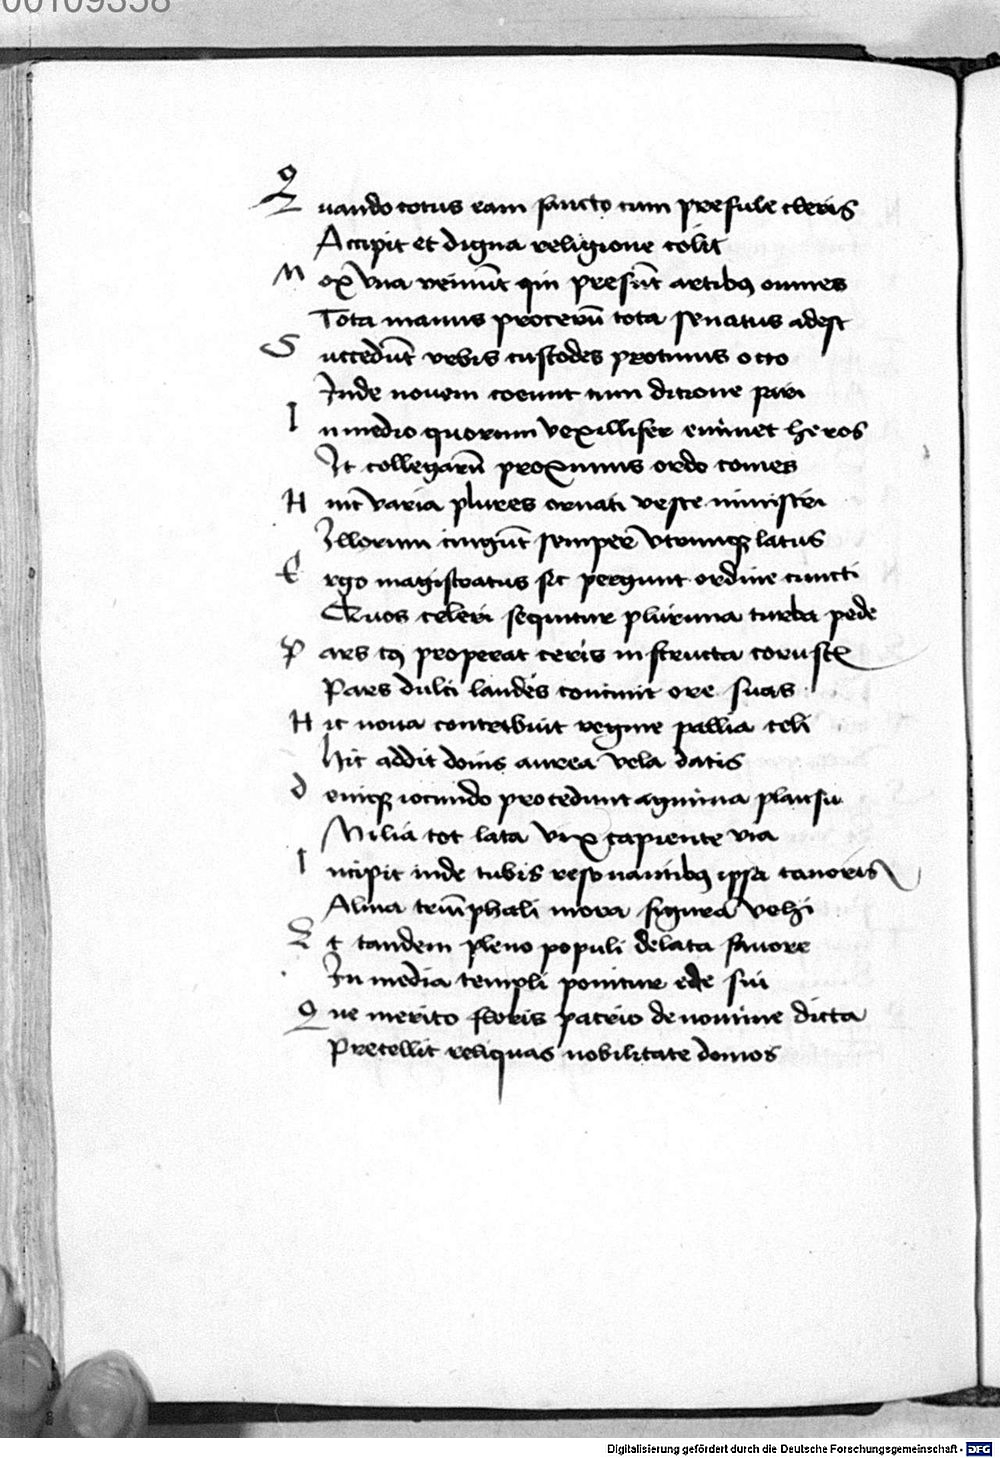 00109358
Quando totus eam sancto cum presule clerus
Accipit et digna religione colit
Mox vna veniūt qui presūt artibꝯ omnes
Tota manus procerū tota senatus adest
Succedūt vrbis custodes protinus octo
Inde nouem coeunt cum ditione pari
In medio quorum vexillifer eminet heros
It collegarū proximus ordo comes
Hinc varia plures ornati veste ministri
Illorum cingūt semper vtrumqꝫ latus
Ergo magistratus sic pergunt ordine cuncti
Quos celeri sequitur plurima turba pede
Pars properat ceris instructa
Pars dulci laudes concinit ore suas
Hic noua contribuit regine pallia celi
Hic addit donis aurea vela datis
deniqꝫ iocundo procedunt agmina plausu
Milia tot lata vix capiente via
Incipit inde tubis resonantibꝯ ipsa canoris
Alma triūphali mora figura vehi
Et tandem pleno populi delata fauore
In media templi ponitur ede sui
Que merito floris patrio de nomine dicta
Precellit reliquas nobilitate domos
Digitalisierung gefördert durch die Deutsche Forschungsgemeinschaft - DFG